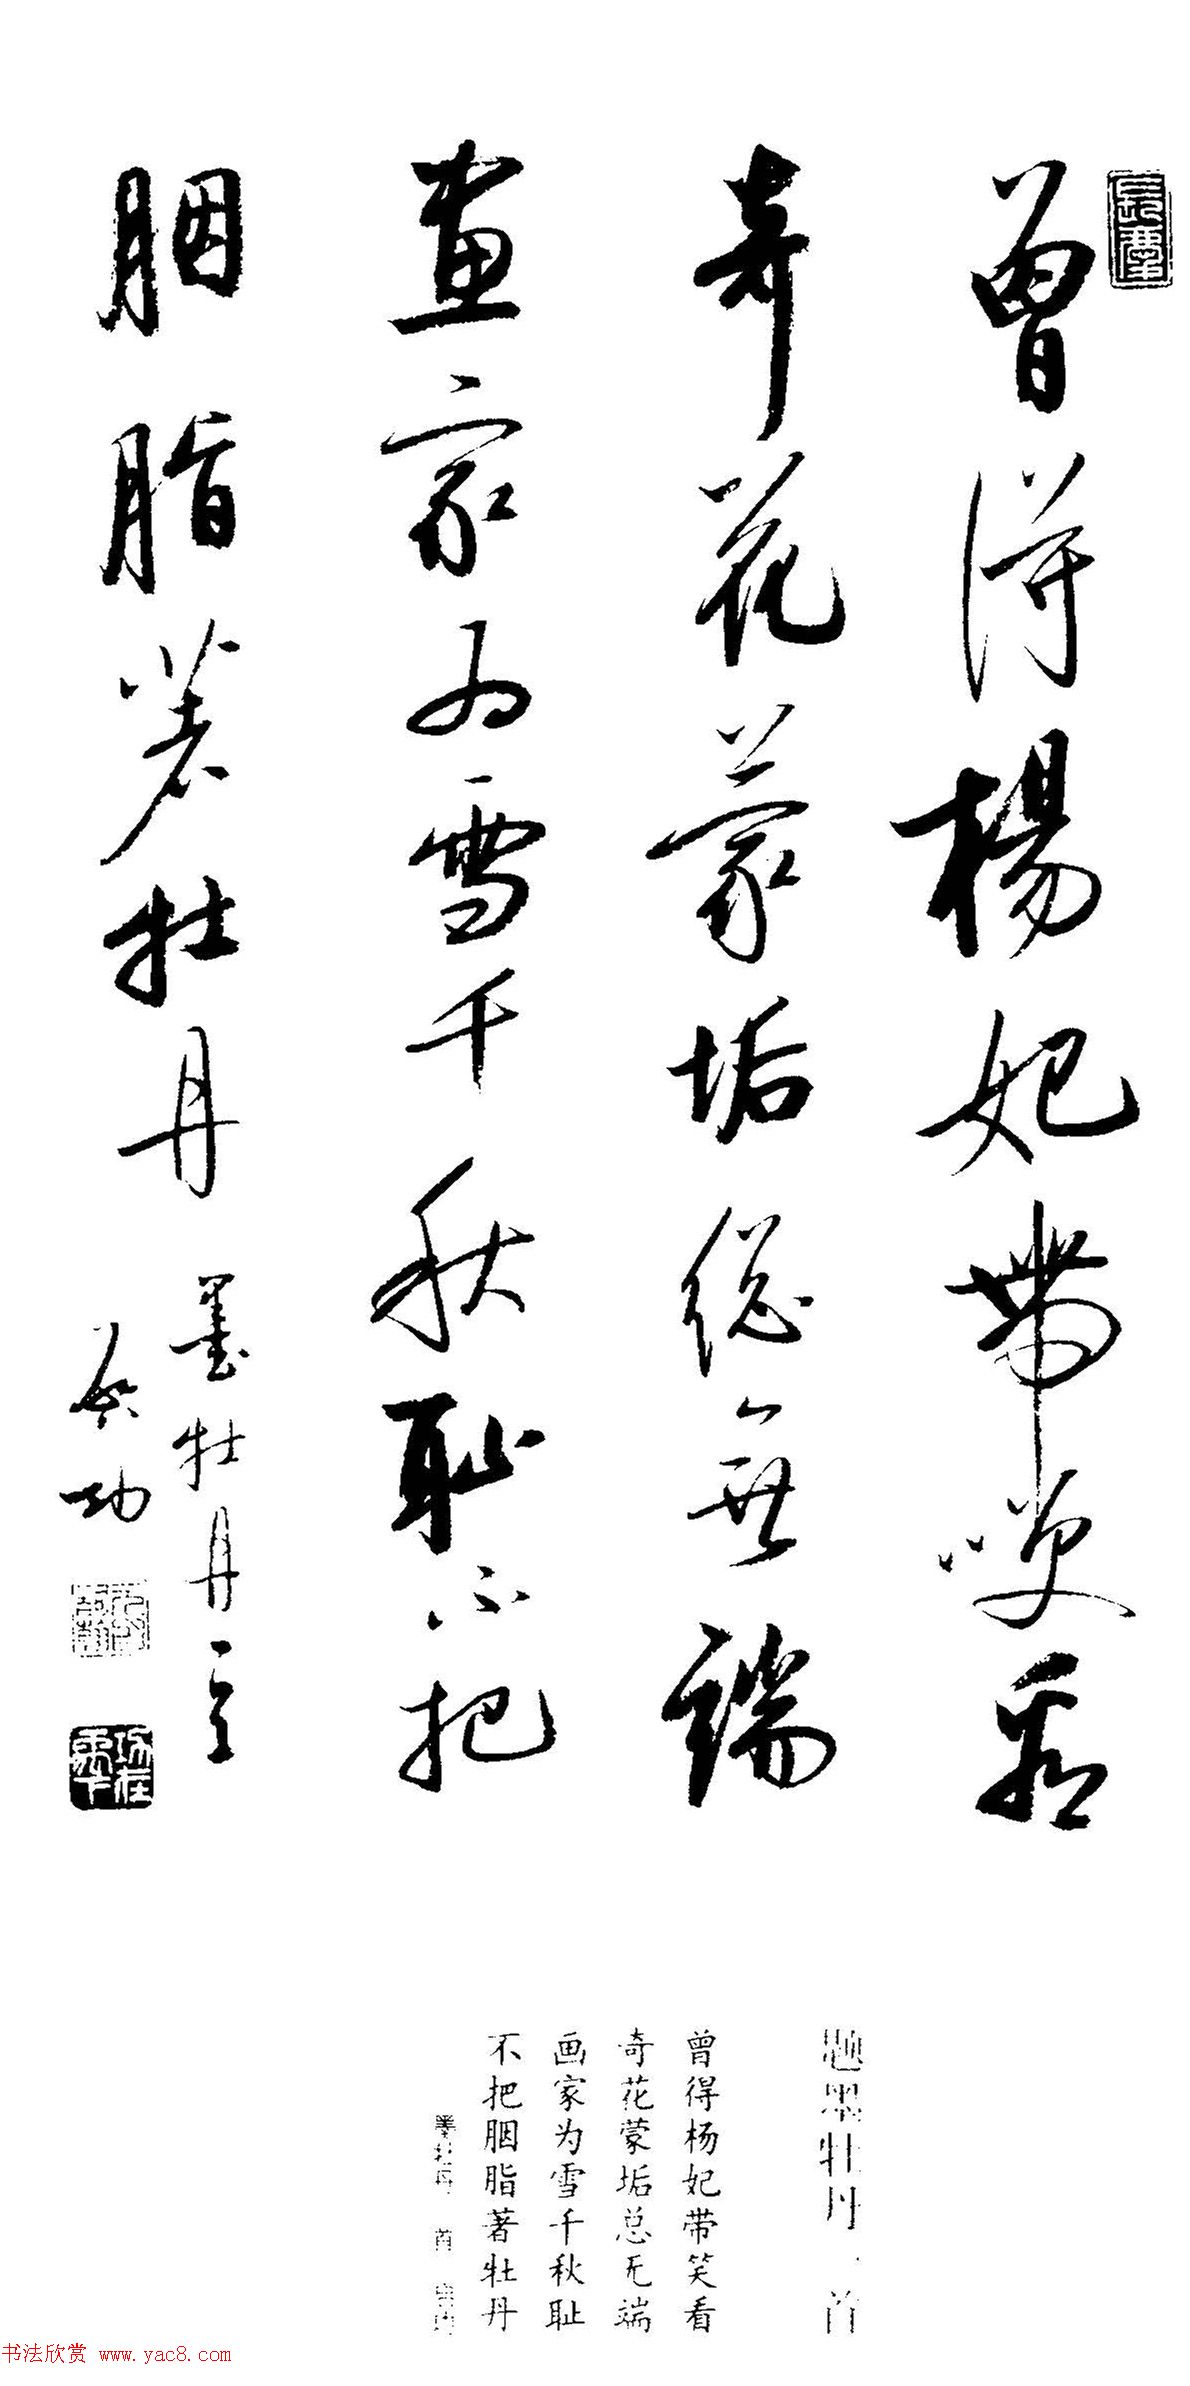 曾得楊妃带咲看
奇花蒙垢總無端
畫家为雪千秋恥不把
胭脂著牡丹
墨牡丹一首
啟功
题墨牡丹一首
曾得杨妃带笑看
奇花蒙垢总无端
画家为雪千秋耻
不把胭脂著牡丹
墨牡丹 首
书法欣赏 www.yac8.com